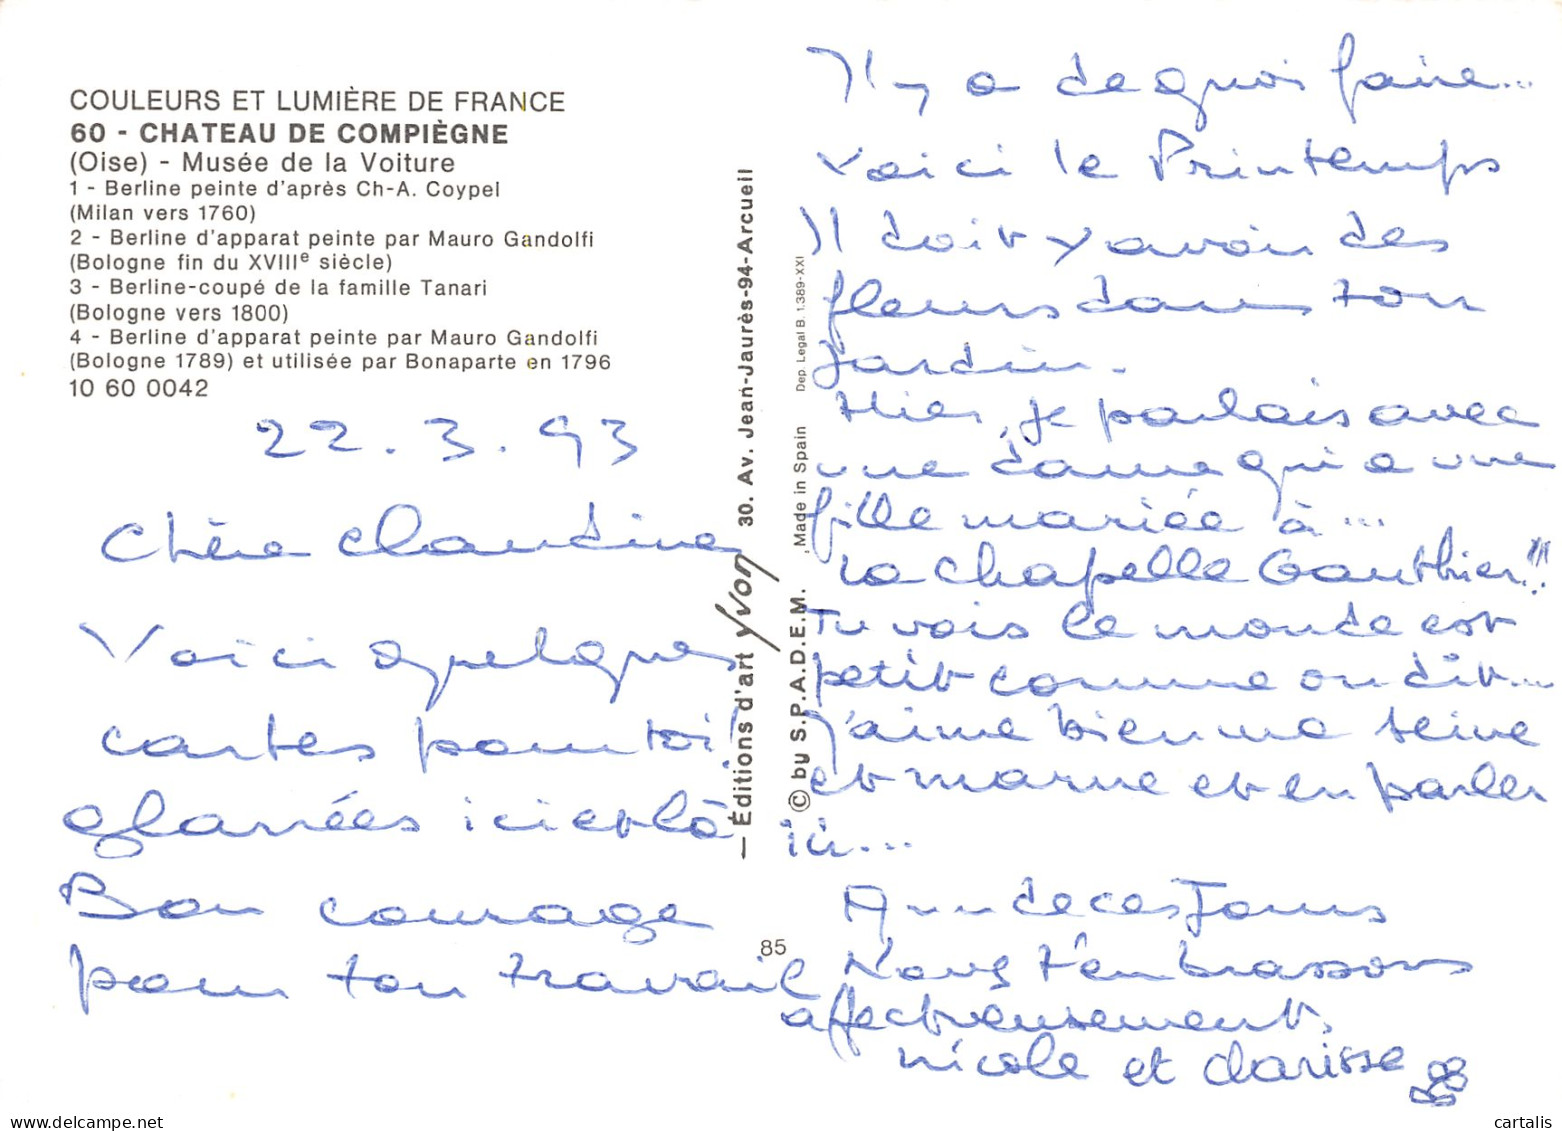 COULEURS ET LUMIÈRE DE FRANCE
60 - CHATEAU DE COMPIÈGNE
(Oise) - Musée de la Voiture
1 - Berline peinte d'après Ch-A. Coypel
(Milan vers 1760)
2 - Berline d'apparat peinte par Mauro Gandolfi
(Bologne fin du XVIIIe siècle)
3 - Berline-coupé de la famille Tanari
(Bologne vers 1800)
4 - Berline d'apparat peinte par Mauro Gandolfi
(Bologne 1789) et utilisée par Bonaparte en 1796
10 60 0042
22.3.93
Chère Claudine
Voici quelques
cartes pour toi!
glanées ici et là
Bon courage
pour ton travail
— Éditions d'art Yvon 30. Av. Jean-Jaurès-94-Arcueil
© by S.P.A.D.E.M. Made in Spain Dep. Legal B. 1.389-XXI
85
Il y a de quoi faire...
Voici le Printemps
Il doit y avoir des
fleurs dans ton
Jardin.
Hier, je parlais avec
une dame qui a une
fille mariée à...
la chapelle Gauthier!!!
Tu vois le monde est
petit comme on dit...
J'aime bien ma seine
et marne et en parler
ici...
A un de ces Jours
Nous t'embrassons
affectueusement.
nicole et clarisse
cartalis